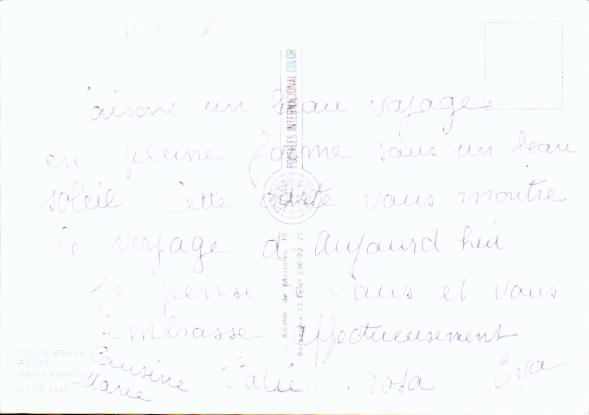 Faisons un beau voyage
en pleine forme sous un beau
soleil Cette carte vous montre
le voyage d'Aujourd'hui
Je pense vous et vous
Embrasse affectueusement
Cousine
Marie
Rosa Eva
POSTALES INTERNACIONAL COLOR
C/. Alcalde de Móstoles, 15
Barcelona 13 Telef. 236-92-21
COSTA BRAVA
ROSAS